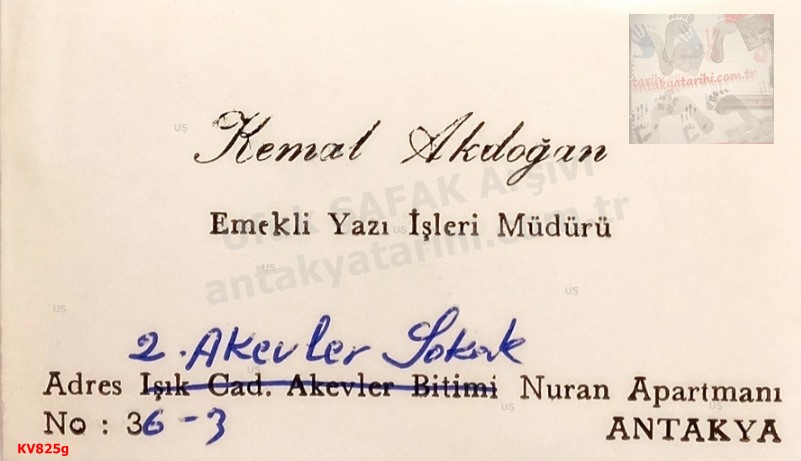 antakyatarihi.com.tr
Kemal Akdoğan
Emekli Yazı İşleri Müdürü
Ufuk ŞAFAK Arşivi
antakyatarihi.com.tr
2. Akevler Sokak
Adres Işık Cad. Akevler Bitimi Nuran Apartmanı
No : 36-3 ANTAKYA
KV825g